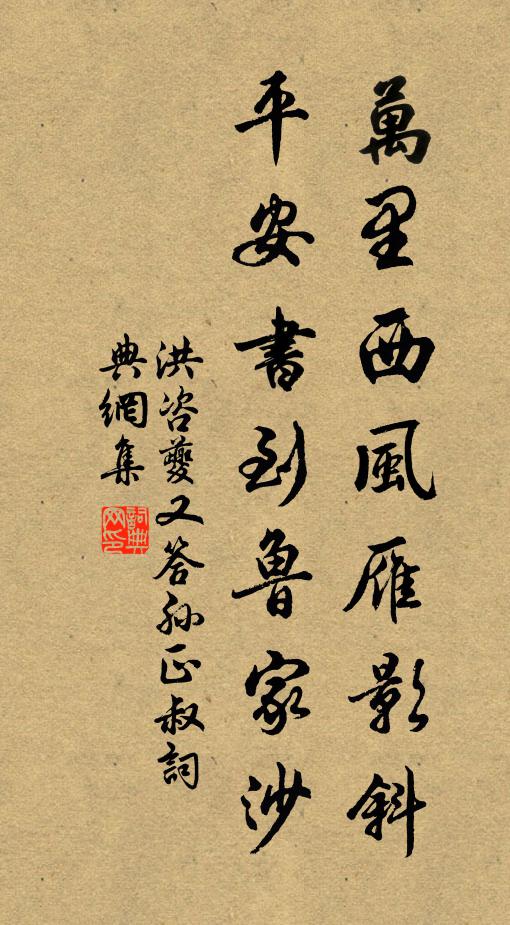 萬里西風雁影斜
平安書到魯家沙
洪咨夔又答孫正叔詞
典網集
詞典
网印